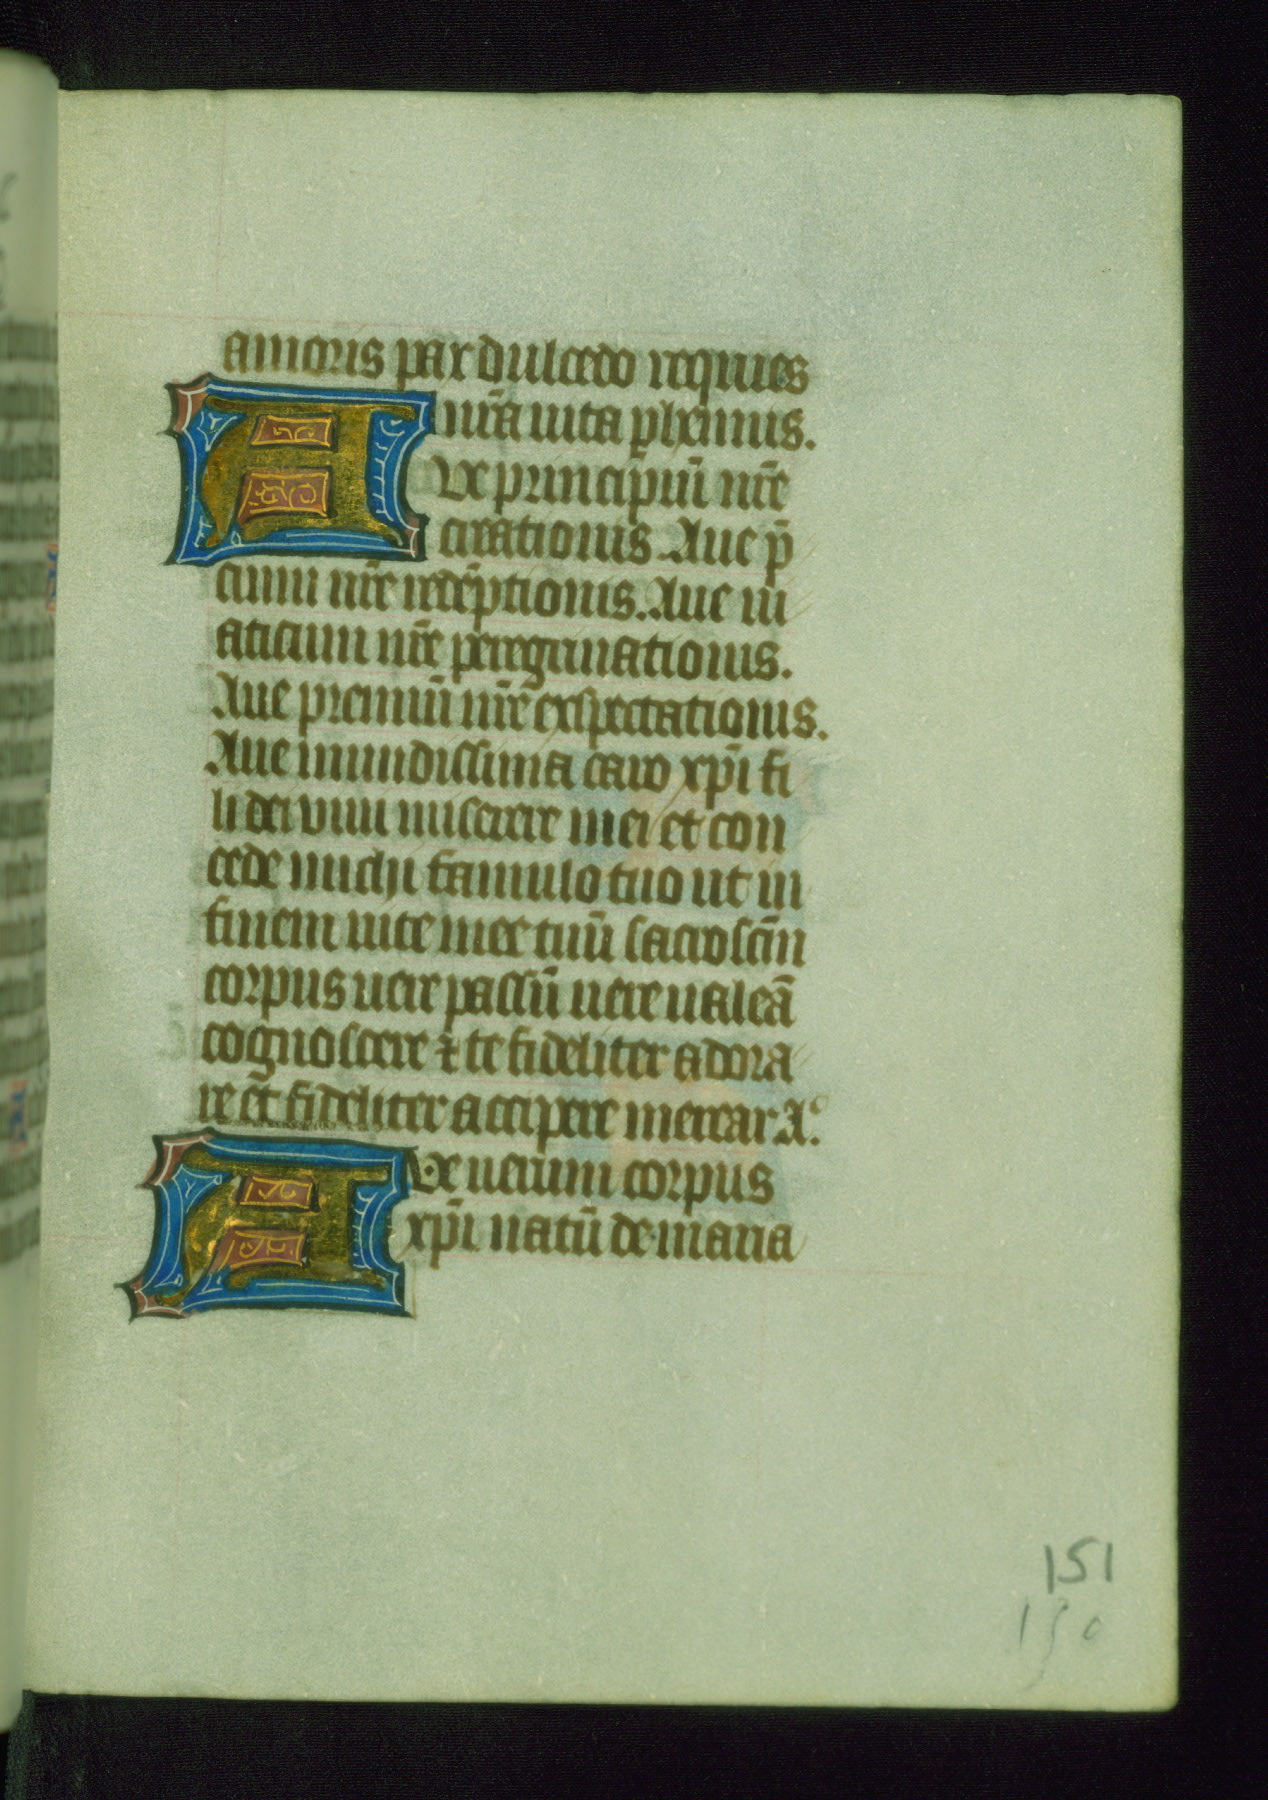 amoris pax dulcedo requies
nr̃a uita phennis.
AUe principiũ nr̃e
creationis. Aue p̃
cium nr̃e redẽptionis. Aue ui
aticum nr̃e peregrinationis.
Aue premiũ nr̃e exspectationis.
Aue mundissima caro xp̃i fi
li dei viui miserere mei et con
cede michi famulo tuo ut in
finem uite mee tuũ sacrosc̃m
corpus uere passũ uere ualeã
cognoscere ⁊ te fideliter adora
re et fideliter accipere merear A⁹.
AUe uerum corpus
xp̃i natũ de maria
151
150